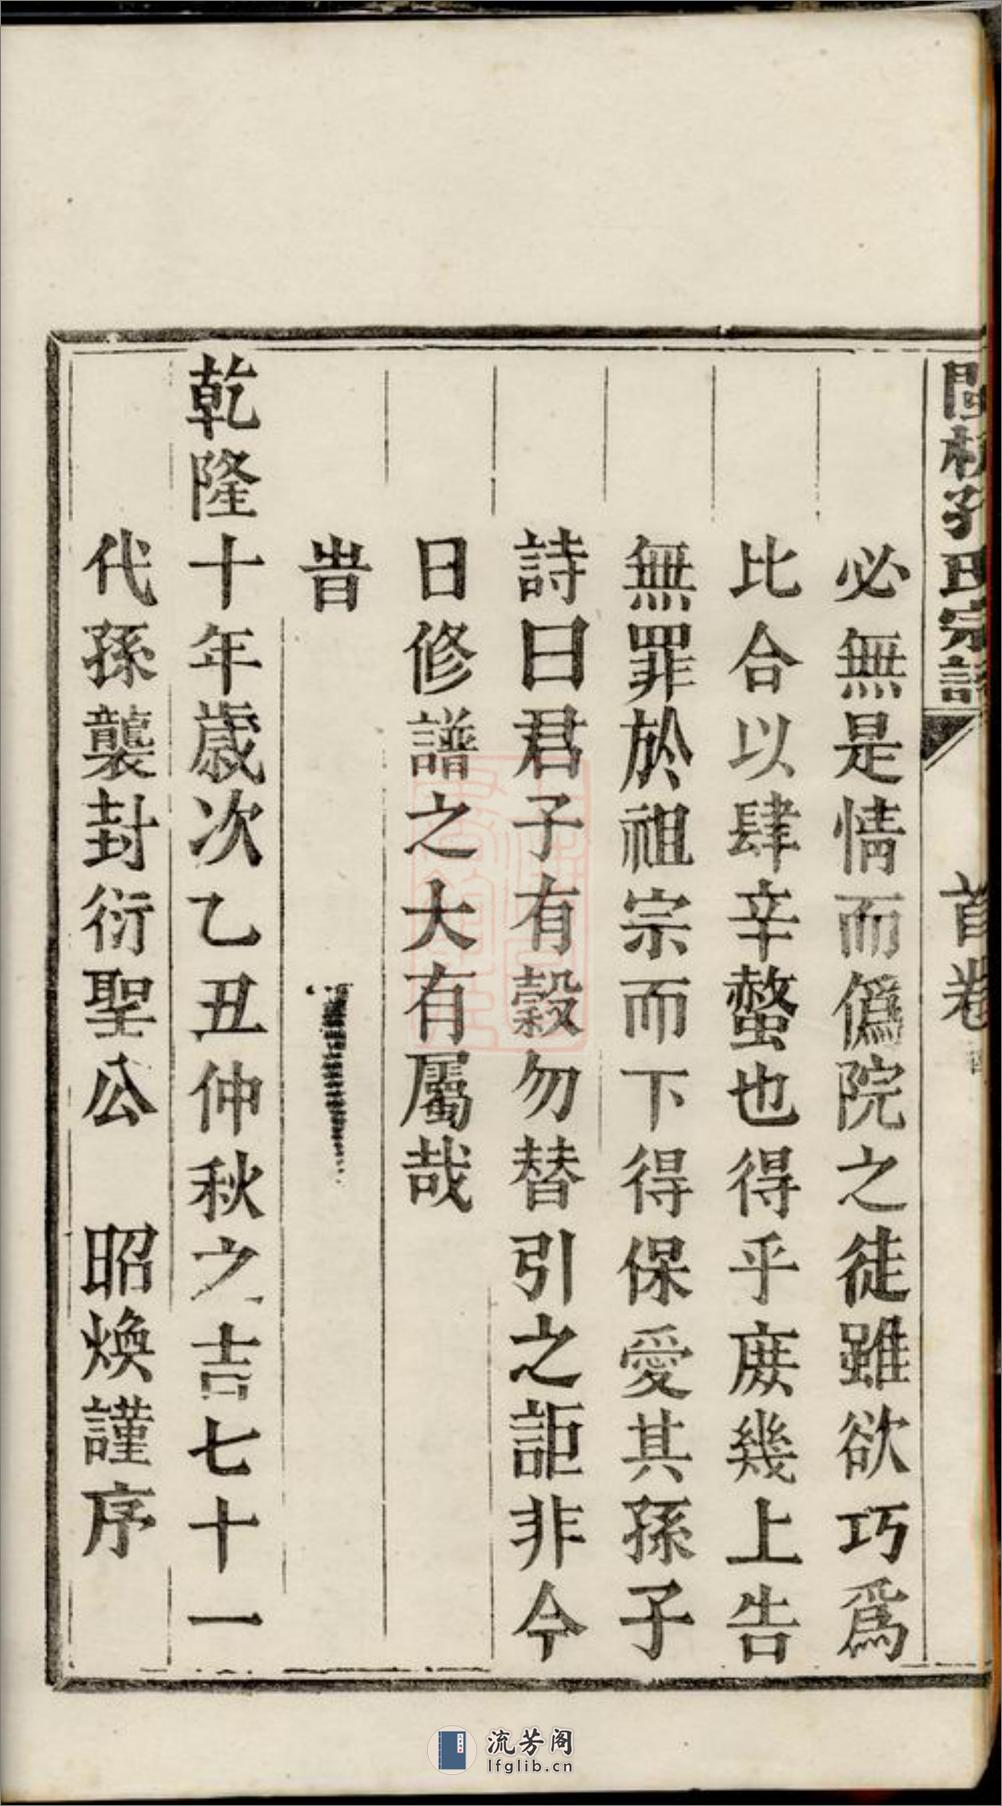 孔氏宗譜
首卷
必無是情而僞院之徒雖欲巧爲
比合以肆辛螫也得乎庻幾上告
無罪於祖宗而下得保愛其孫子
詩曰君子有穀勿替引之詎非今
日修譜之大有屬哉
旹
乾隆十年歲次乙丑仲秋之吉七十一
代孫襲封衍聖公 昭煥謹序
流芳阁
lfglib.cn